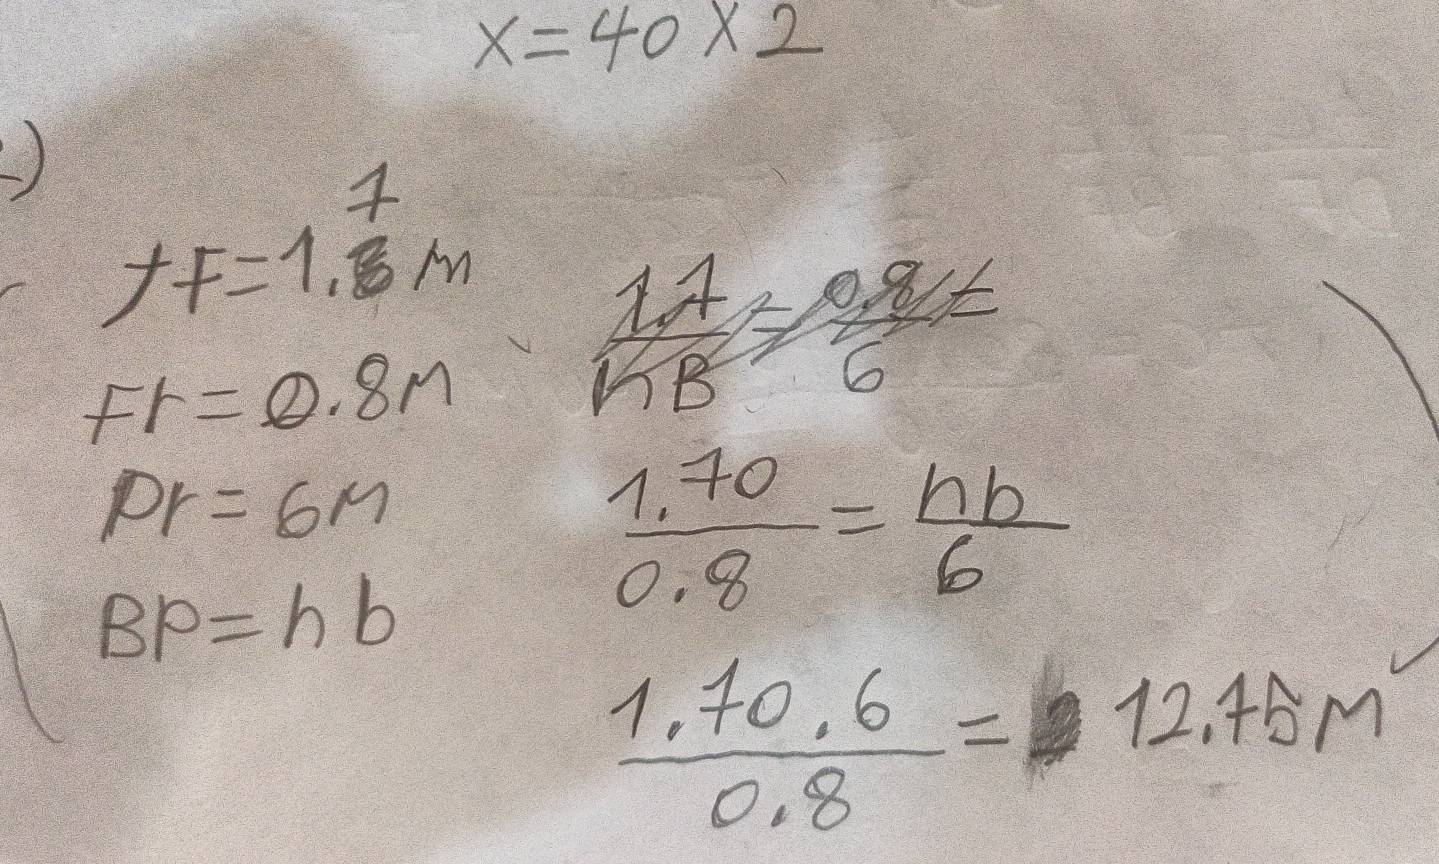 x=40x2
2)
JF=1.7m
Fr=0.8m
Pr=6m
BP=hb
1.7/hB=0.8/6=
1.70/0.8=hb/6
1.70.6/0.8=12.75m